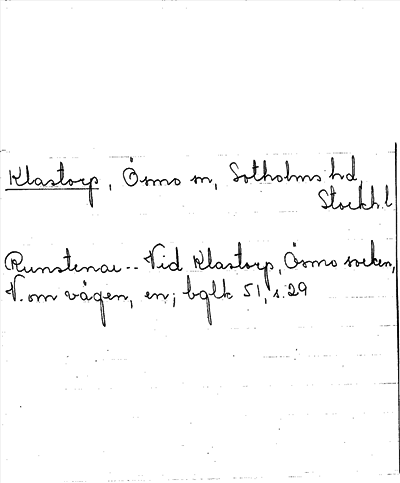 Klastorp, Ösmo sn, Sotholms hd,
Stockh. l.
Runstenar.. Vid Klastorp, Ösmo socken,
V. om vägen, en; bglk 51, s. 29